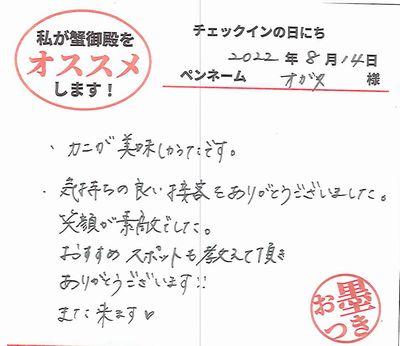 私が蟹御殿を
オススメ
します！
チェックインの日にち
2022 年 8 月 14 日
ペンネーム オガタ 様
・カニが美味しかったです。
・気持ちの良い接客もありがとうございました。
笑顔が素敵でした。
おすすめスポットも教えて頂き
ありがとうございます!!
また来ます♥
お墨つき